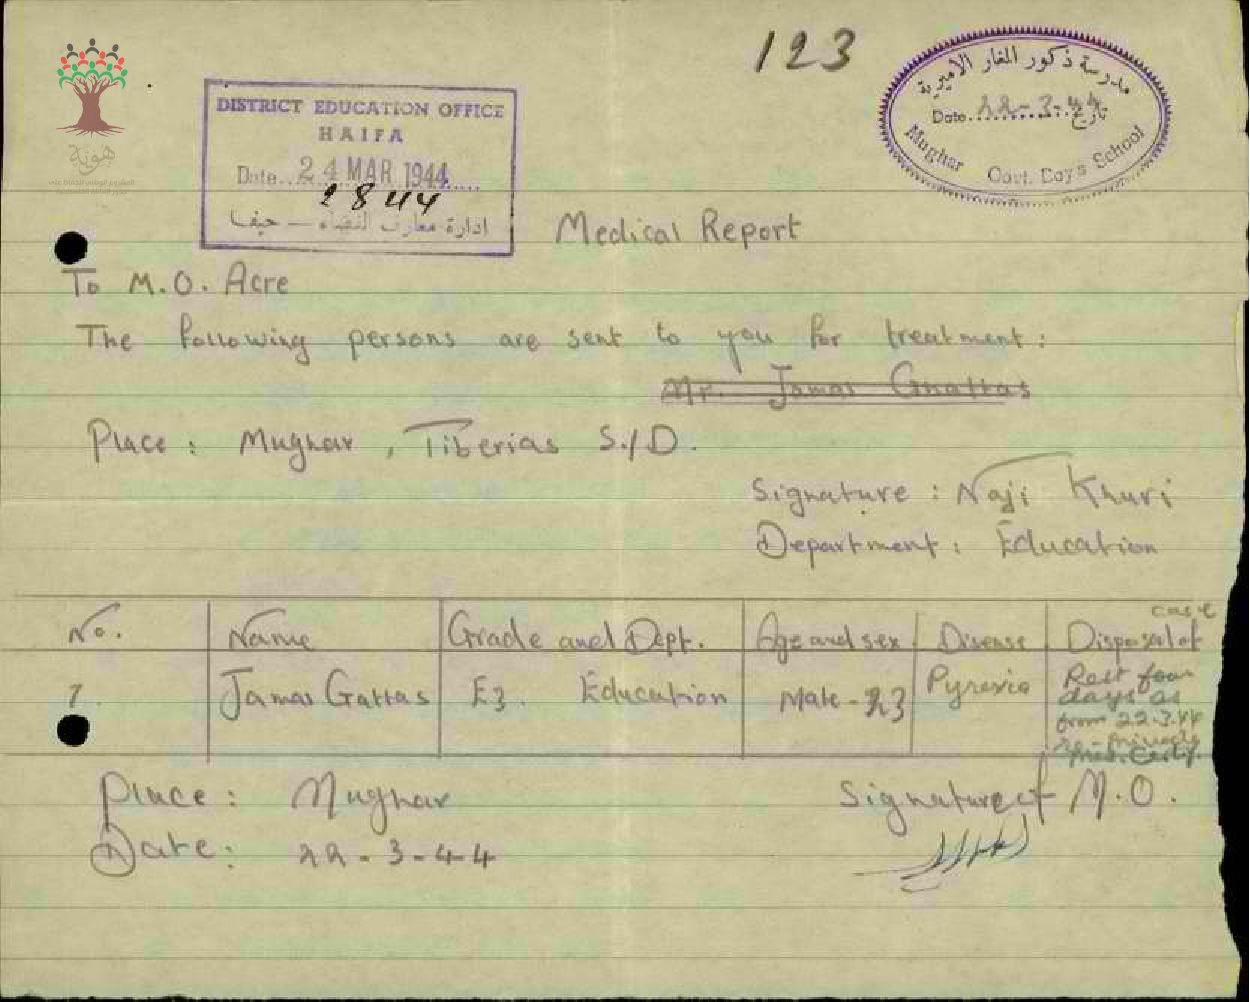 123
مدرسة ذكور المغار الاميرية
Date 22-3-44 تاريخ
Mughar Govt. Boys School
DISTRICT EDUCATION OFFICE
HAIFA
Date 24 MAR 1944
2844
ادارة معارف القضاء — حيفا
هوية
Medical Report
To M.O. Acre
The following persons are sent to you for treatment:
Mr. Jamal Ghattas
Place: Mughar, Tiberias S./D.
Signature: Naji Khuri
Department: Education
No. Name Grade and Dept. Age and sex Disease Disposal of case
1 Jamal Gattas E3. Education Male - 23 Pyrexia Rest four
days as
from 22.3.44
Med. Certif.
Place: Mughar Signature of M.O.
Date: 22-3-44